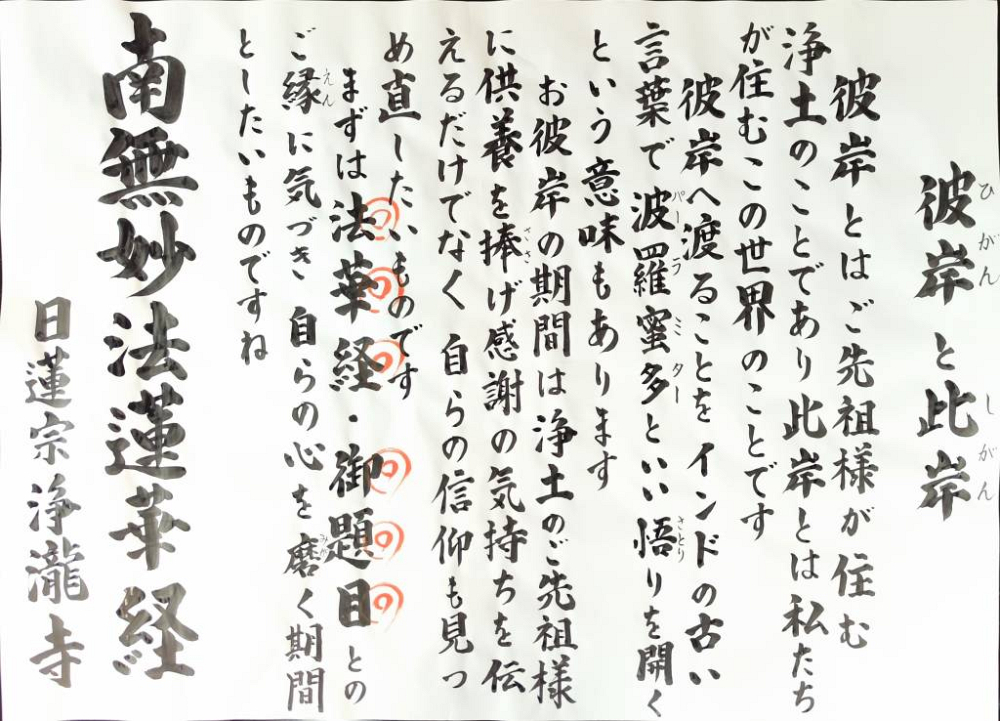 彼岸と此岸
彼岸とはご先祖様が住む
浄土のことであり此岸とは私たち
が住むこの世界のことです
彼岸へ渡ることをインドの古い
言葉で波羅蜜多といい悟りを開く
という意味もあります
お彼岸の期間は浄土のご先祖様
に供養を捧げ感謝の気持ちを伝
えるだけでなく自らの信仰も見つ
め直したいものです
まずは法華経・御題目との
ご縁に気づき自らの心を磨く期間
としたいものですね
南無妙法蓮華経
日蓮宗浄瀧寺